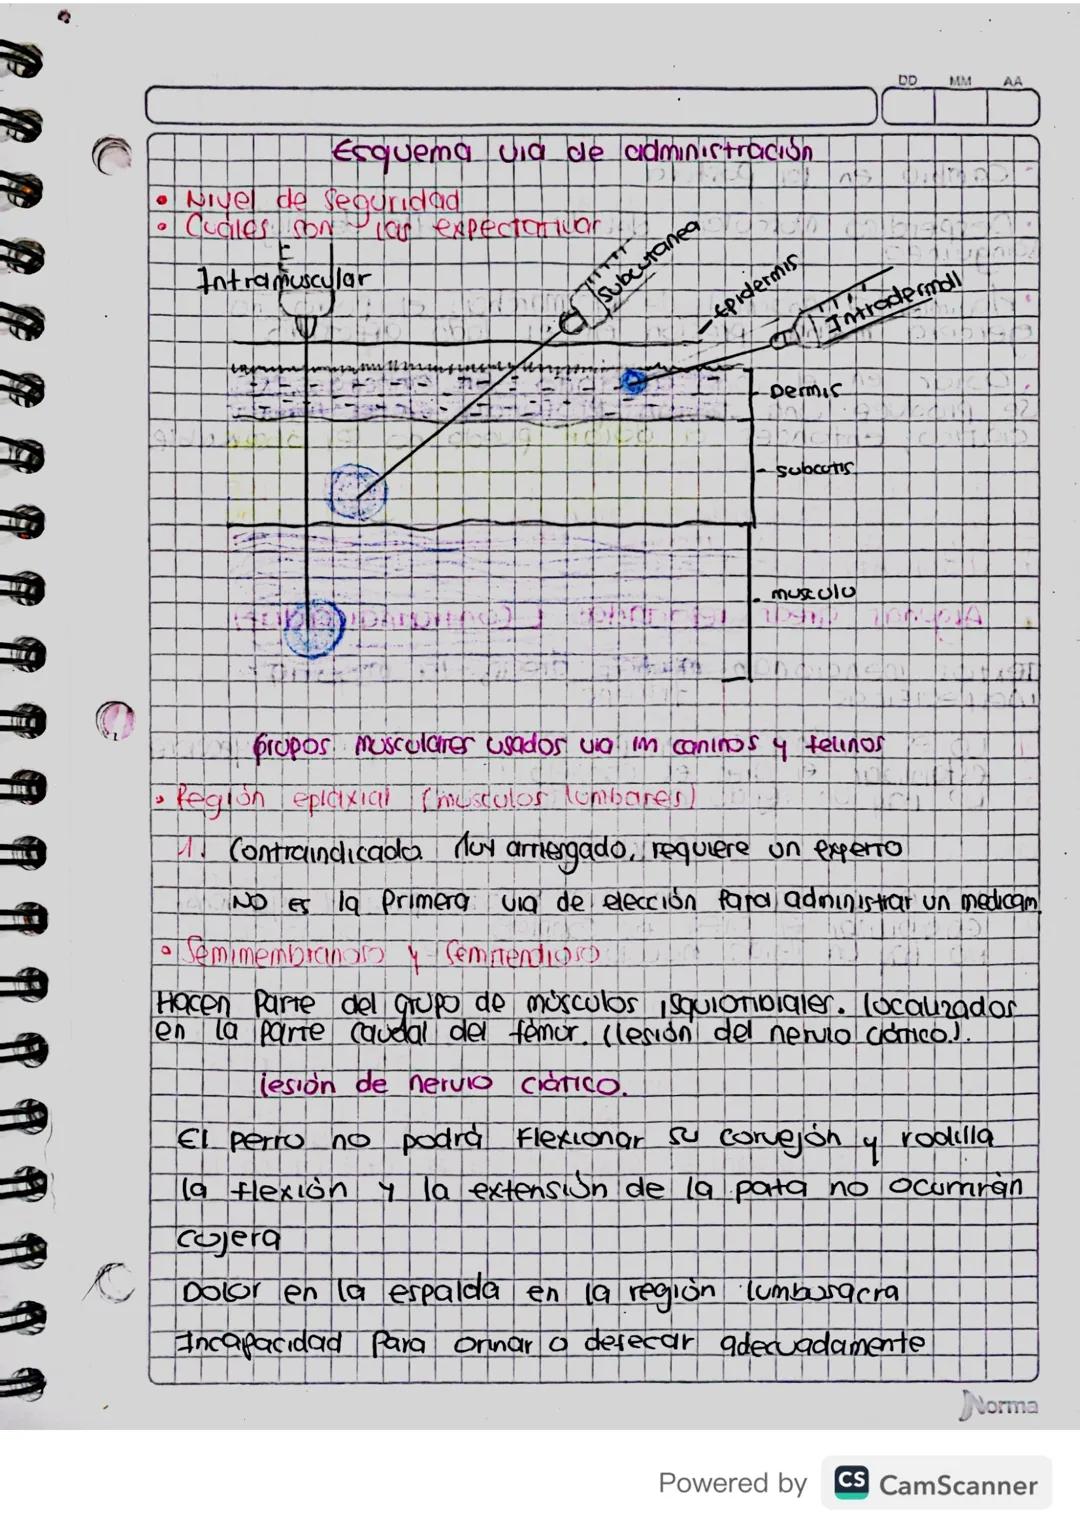 DD MM AA
Esquema via de administración
• Nivel de seguridad
• Cuáles son las expectativas
Intramuscular
Subcutanea
- Epidermis
Intradermall
- Dermis
- Subcutis
- musculo
Grupos musculares usados via im caninos y felinos
• Región epiaxial (musculos lumbares)
1. Contraindicada. Muy arriesgado, requiere un experto
NO es la primera via de elección para administrar un medicam
• Semimembranoso y Semitendioso
Hacen parte del grupo de músculos isquiotibiales. localizados
en la parte caudal del fémur. (lesión del nervio ciático).
lesión de nervio ciático.
El perro no podrá flexionar su corvejón y rodilla
la flexión y la extensión de la pata no ocurrirán
cojera
Dolor en la espalda en la región lumbosacra
Incapacidad para orinar o defecar adecuadamente
Norma
Powered by CS CamScanner